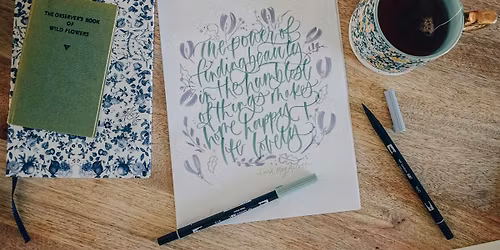 THE OBSERVER'S BOOK
OF
WILD FLOWERS
The power of
finding beauty
in the humblest
of things makes
home happy +
life lovely